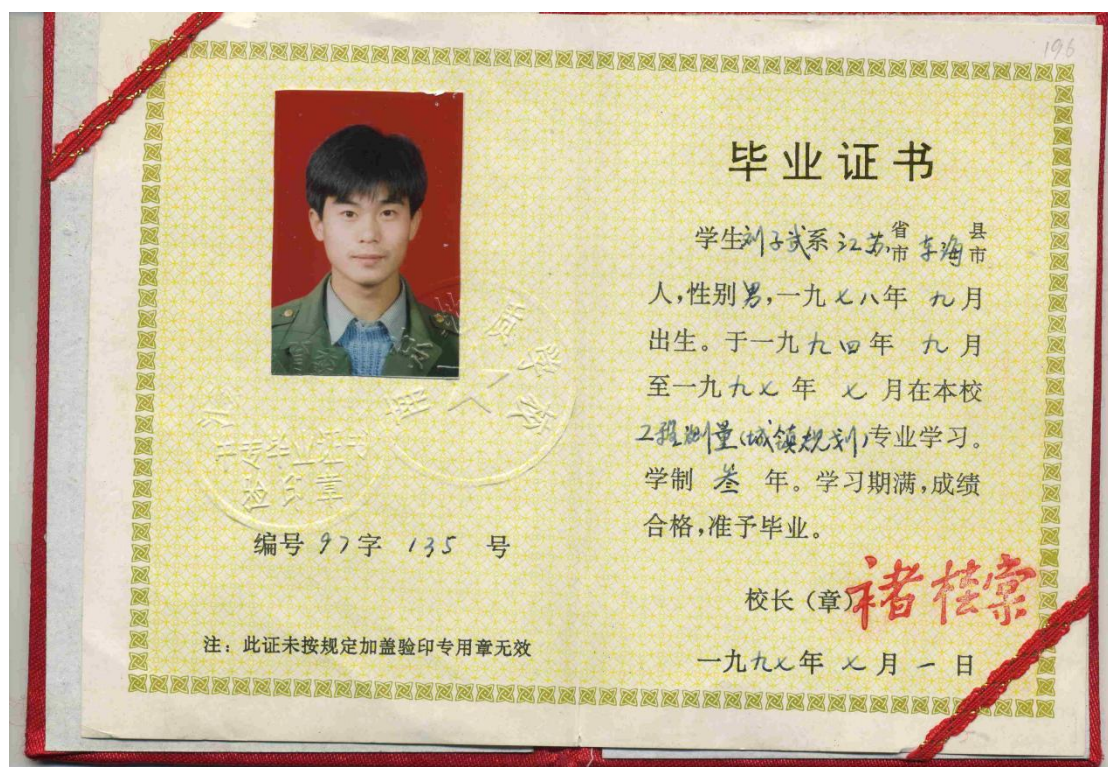 196
毕业证书
学生刘子武系江苏省市东海县市
人,性别男,一九七八年九月
出生。于一九九四年九月
至一九九七年七月在本校
工程测量(城镇规划)专业学习。
学制叁年。学习期满,成绩
合格,准予毕业。
校长(章)褚桂棠
一九九七年七月一日
地质学校
中专毕业证书
验印章
编号97字135号
注:此证未按规定加盖验印专用章无效